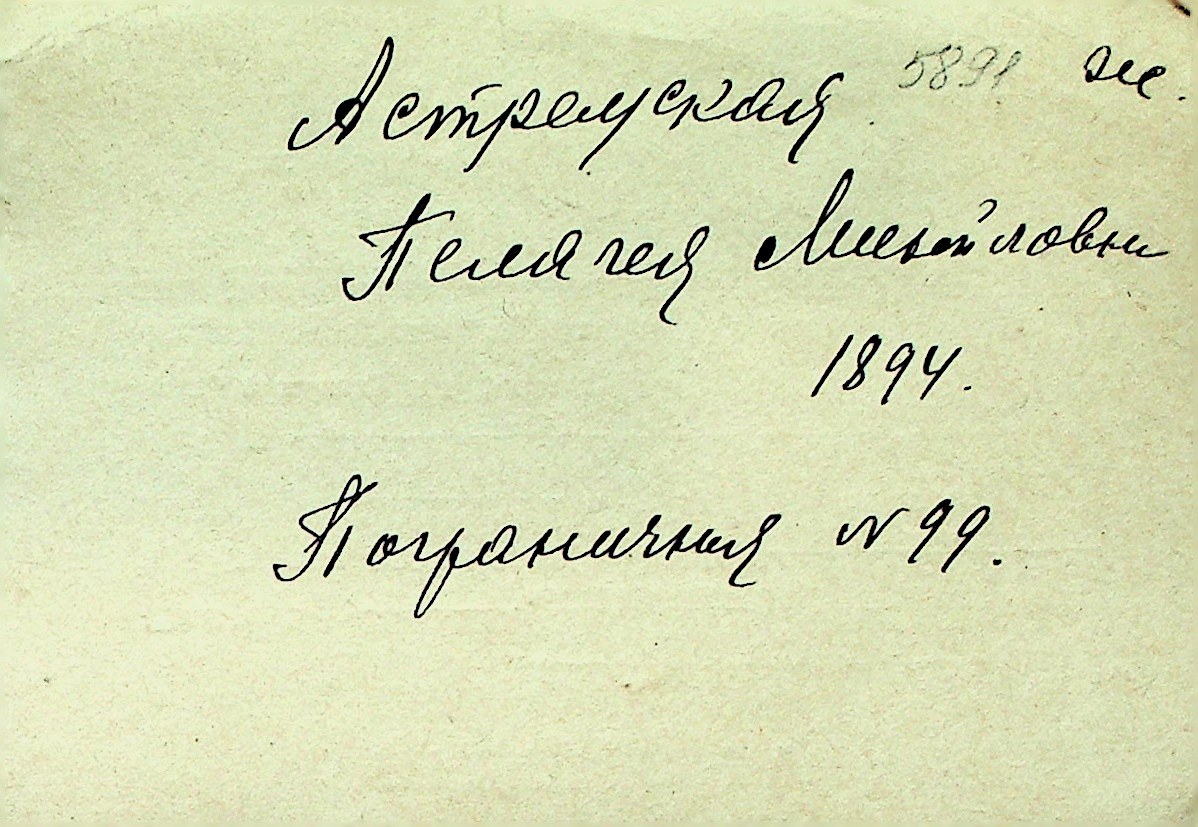 Астремская 5891 ж.
Пелагея Михайловна
1894.
Пограничная N 99.